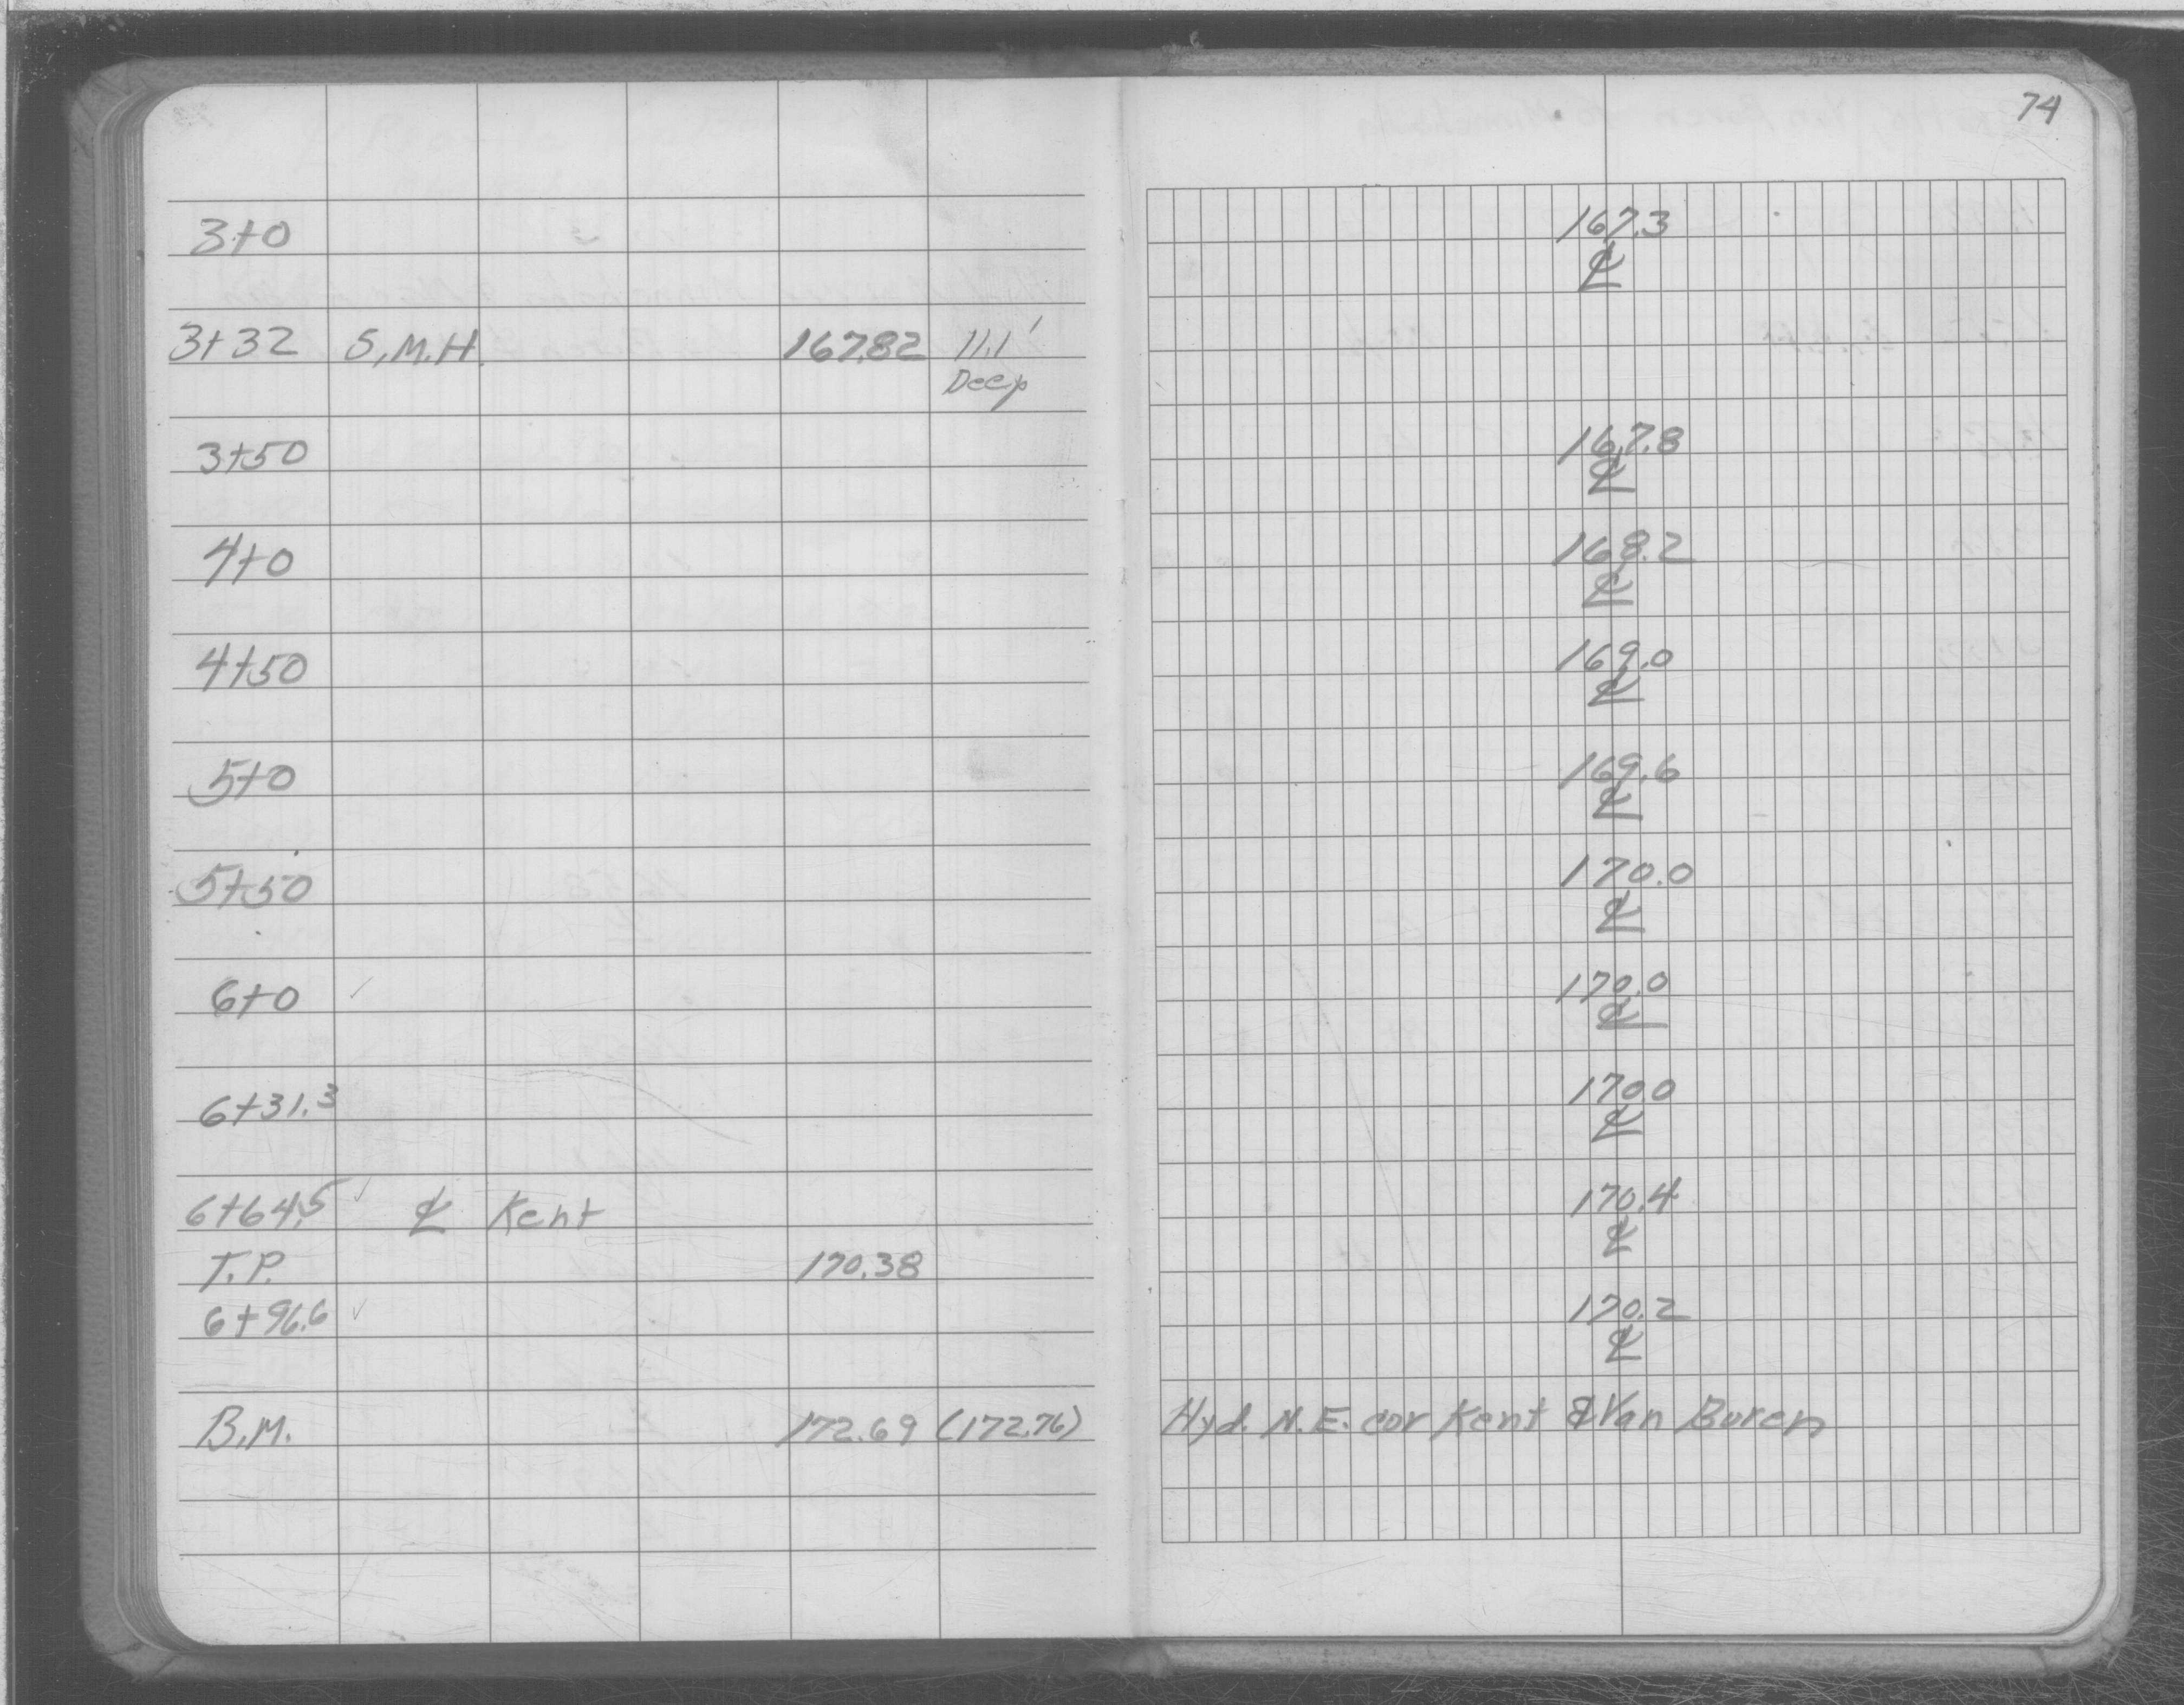 74
3+0 167.3
℄
3+32 S.M.H. 167.82 11.1'
Deep
3+50 167.8
℄
4+0 168.2
℄
4+50 169.0
℄
5+0 169.6
℄
5+50 170.0
℄
6+0 ✓ 170.0
℄
6+31.3 170.0
℄
6+64.5 ✓ ℄ Kent 170.4
℄
T.P. 170.38
6+96.6 ✓ 170.2
℄
B.M. 172.69 (172.76) Hyd. N.E. cor Kent & Van Buren